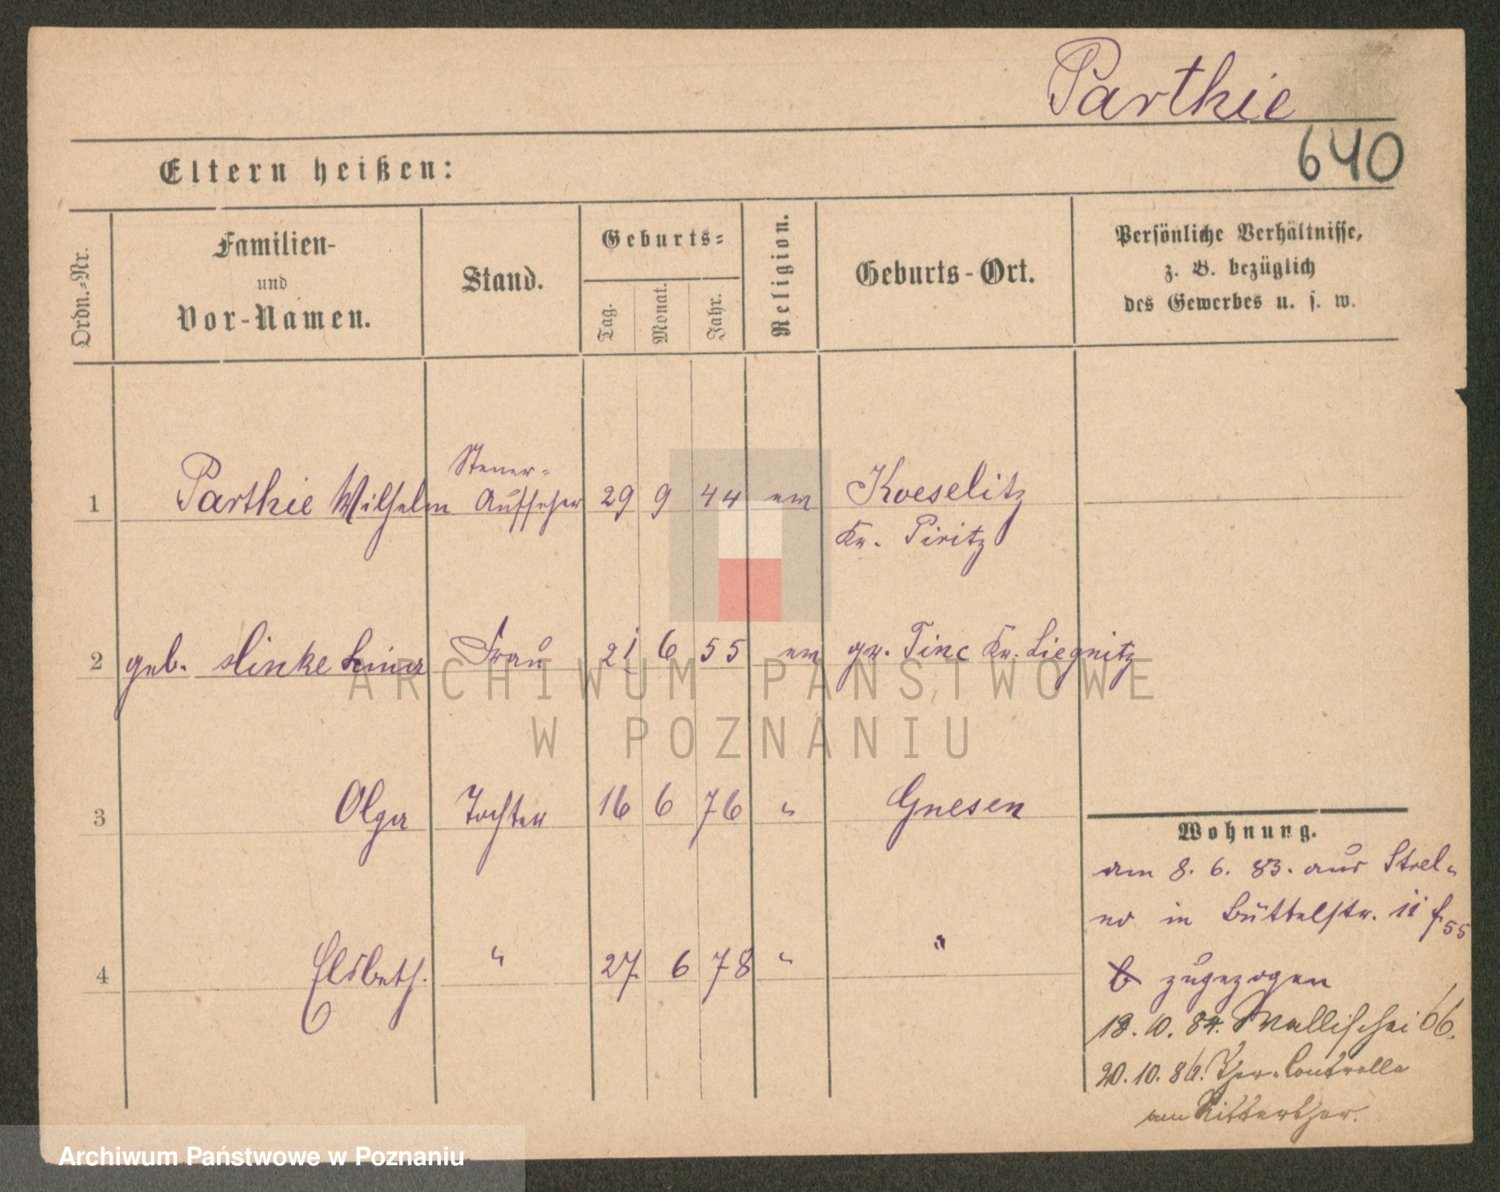 Parthie
640
Eltern heißen:
Ordn.-Nr.
Familien-
und
Vor-Namen.
Stand.
Geburts-
Tag.
Monat.
Jahr.
Religion.
Geburts-Ort.
Persönliche Verhältnisse,
z. B. bezüglich
des Gewerbes u. s. w.
Steuer-
1 Parthie Wilhelm Aufseher 29 9 44 ev Koeselitz
Kr. Piritz
2 geb. Linke Frau 21 6 55 ev gr. Tinc Kr. Liegnitz
3 Olga Tochter 16 6 76 " Gnesen
4 Elsbeth. " 27. 6 78 " "
Wohnung.
am 8. 6. 83. aus Strel-
no in Büttelstr. 11
zugezogen
18. 10. 84. Wallischei 66.
20. 10. 86. Thor-Controlle
am Ritterthor.
ARCHIWUM PAŃSTWOWE
W POZNANIU
Archiwum Państwowe w Poznaniu